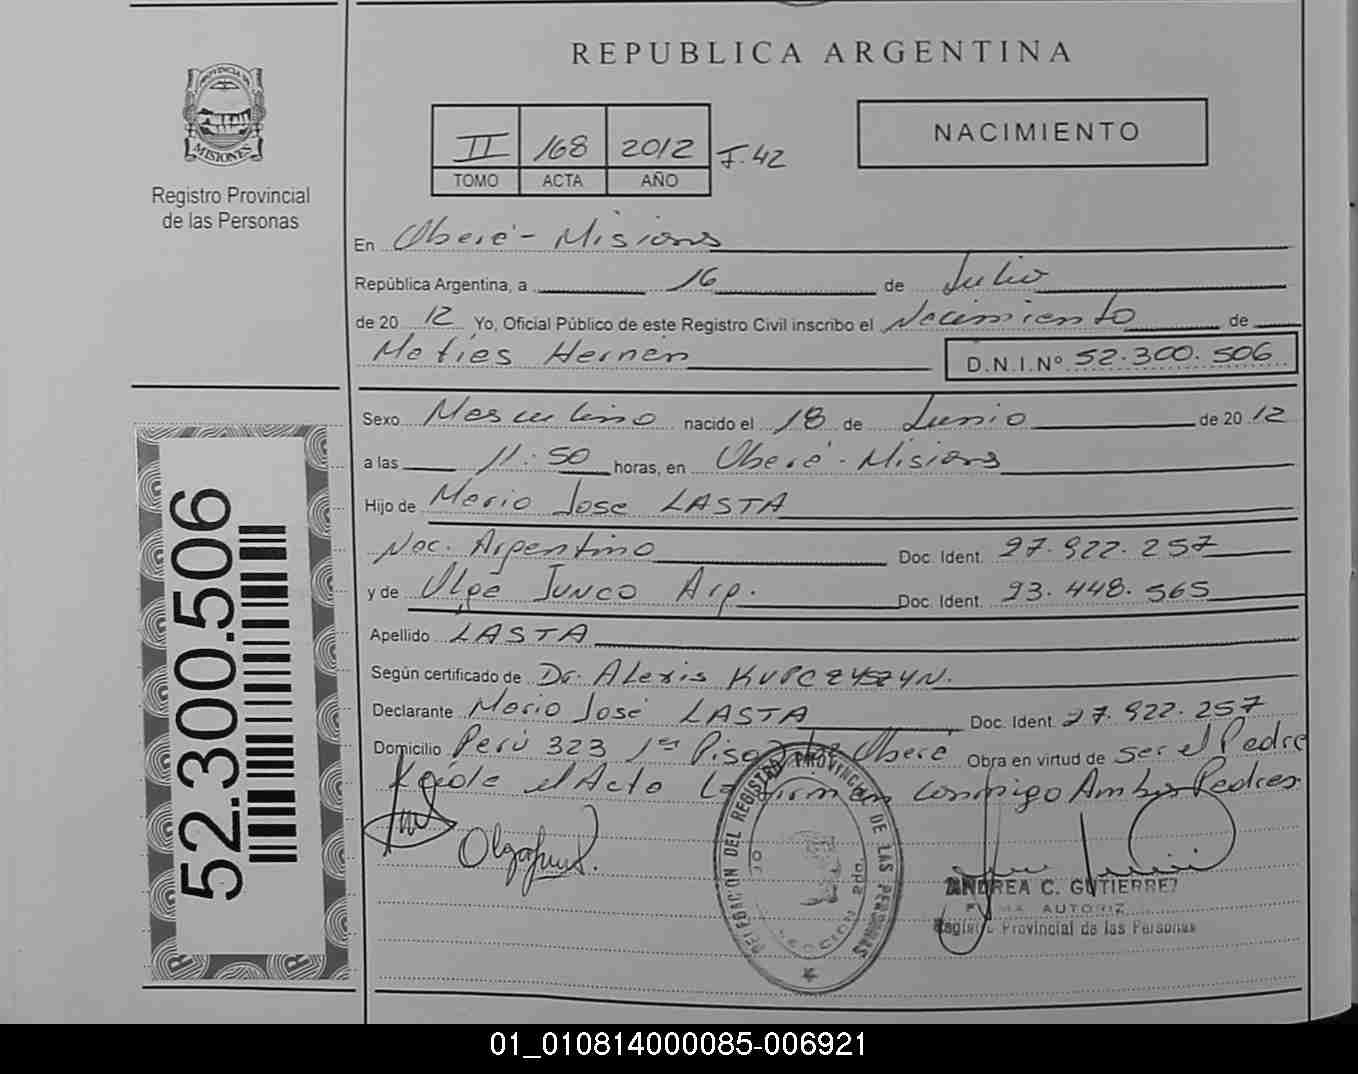 REPUBLICA ARGENTINA
PROVINCIA DE
MISIONES
Registro Provincial
de las Personas
II 168 2012 F. 42
TOMO ACTA AÑO
NACIMIENTO
En Oberá - Misiones
República Argentina, a 16 de Julio
de 20 12 Yo, Oficial Público de este Registro Civil inscribo el Nacimiento de
Matías Hernán D.N.I.Nº 52.300.506
Sexo Masculino nacido el 18 de Junio de 20 12
a las 11:50 horas, en Oberá - Misiones
Hijo de Mario José LASTA
Nac. Argentino Doc. Ident. 27.922.257
y de Olga JUNCO Arg. Doc. Ident. 93.448.565
Apellido LASTA
Según certificado de Dr. Alexis KUPCZYSZYN.
Declarante Mario José LASTA Doc. Ident. 27.922.257
Domicilio Perú 323 1er Piso Oberá Obra en virtud de ser el Padre
Leída el Acta La firman conmigo Ambos Padres
DELEGACION DEL REGISTRO PROVINCIAL DE LAS PERSONAS
SECCION 2da.
ANDREA C. GUTIERREZ
FIRMA AUTORIZ
Registro Provincial de las Personas
52.300.506
01_010814000085-006921